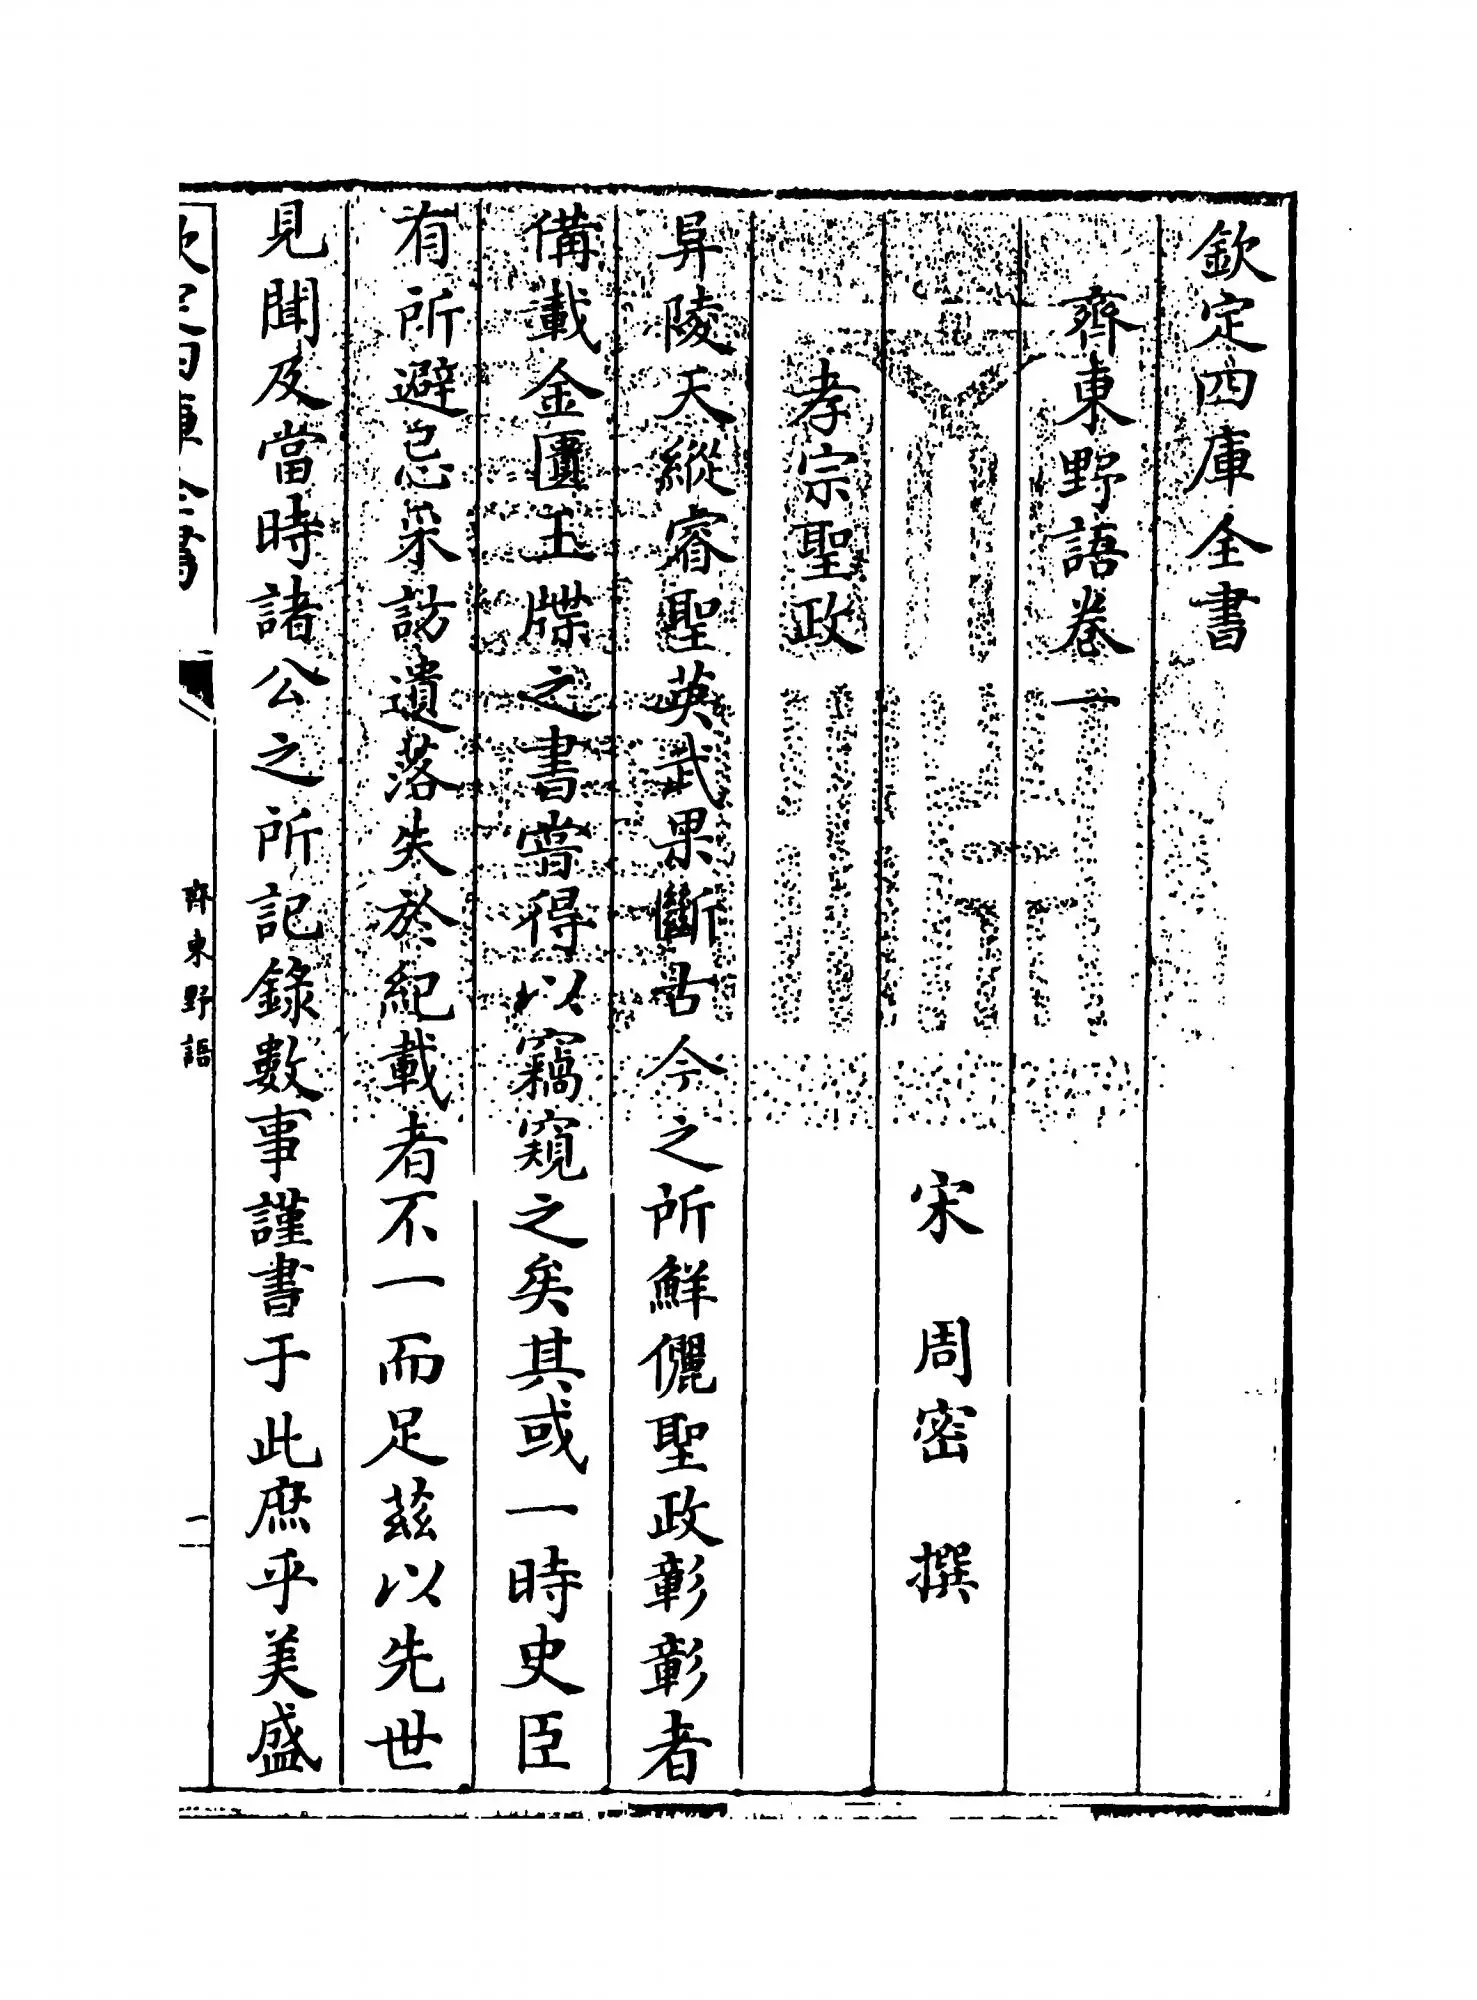 欽定四庫全書
齊東野語卷一
宋 周密 撰
孝宗聖政
阜陵天縱睿聖英武果斷古今之所鮮儷聖政彰彰者
備載金匱玉牒之書嘗得以竊窺之矣其或一時史臣
有所避忌采訪遺落失於紀載者不一而足茲以先世
見聞及當時諸公之所記錄數事謹書于此庶乎美盛
欽定四庫全書
齊東野語
一